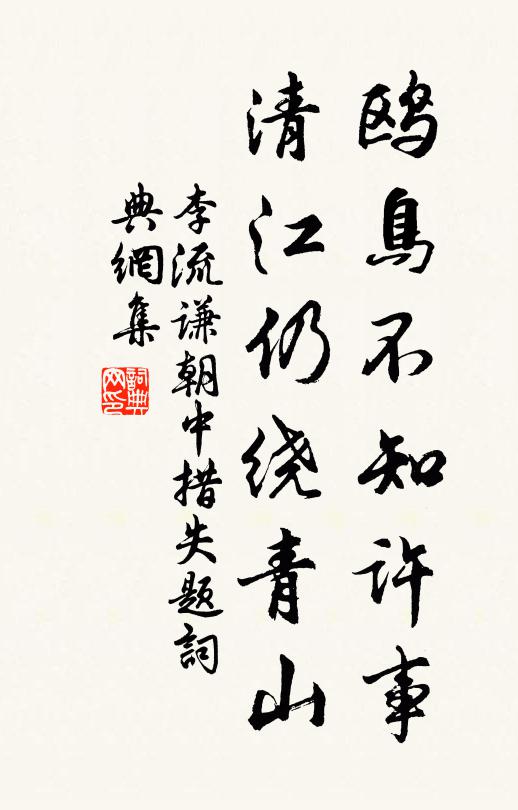 鸥鳥不知许事
清江仍绕青山
李流谦朝中措失题詞
典網集
詞典网印